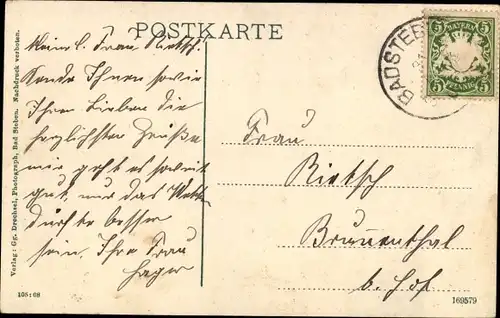 POSTKARTE
Meine l. Frau Rietsch!
Sende Ihnen sowie
Ihren Lieben die
herzlichsten Grüße
mir geht es soweit
gut, nur das Wetter
dürfte besser
sein. Ihre Frau
Hager
BADSTEB
BAYERN
5 5
5 PFENNIG 5
Frau
Rietsch
Brunnenthal
b. Hof
Verlag: Gg. Drechsel, Photograph, Bad Steben. Nachdruck verboten.
105:08
169579